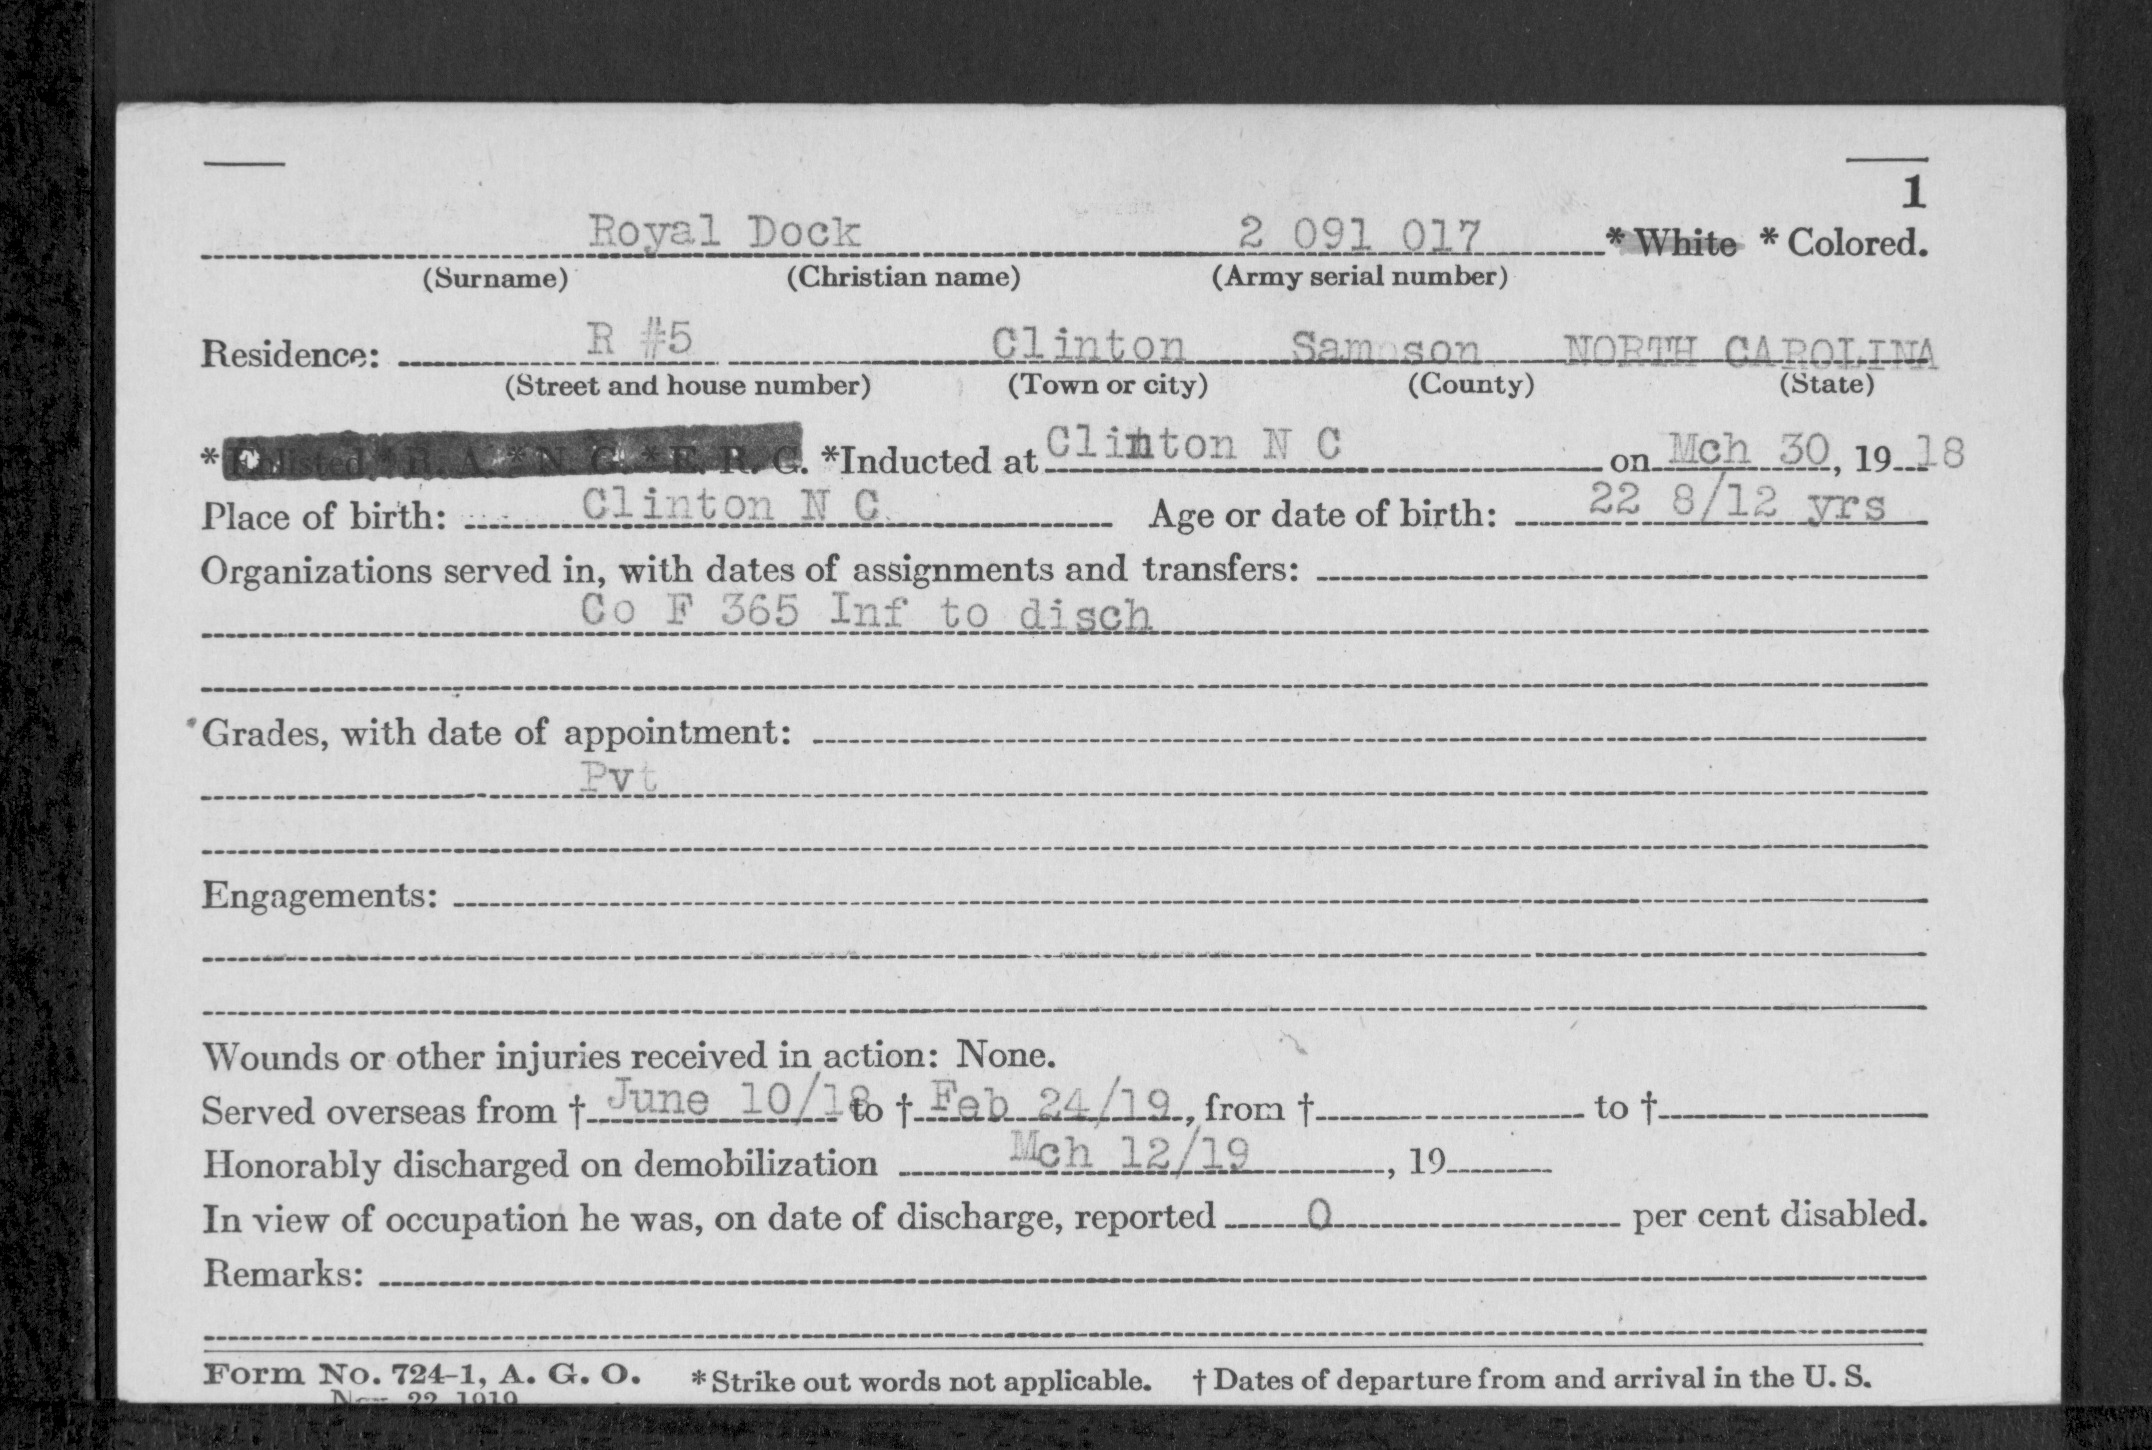 1
Royal Dock 2 091 017 * White * Colored.
(Surname) (Christian name) (Army serial number)
Residence: R #5 Clinton Sampson NORTH CAROLINA
(Street and house number) (Town or city) (County) (State)
* Enlisted * R. A. * N. G. * E. R. C. *Inducted at Clinton N C on Mch 30, 19 18
Place of birth: Clinton N C Age or date of birth: 22 8/12 yrs
Organizations served in, with dates of assignments and transfers:
Co F 365 Inf to disch
Grades, with date of appointment:
Pvt
Engagements:
Wounds or other injuries received in action: None.
Served overseas from † June 10/18 to † Feb 24/19, from † to †
Honorably discharged on demobilization Mch 12/19, 19
In view of occupation he was, on date of discharge, reported 0 per cent disabled.
Remarks:
Form No. 724-1, A. G. O. * Strike out words not applicable. † Dates of departure from and arrival in the U. S.
Nov. 22, 1919